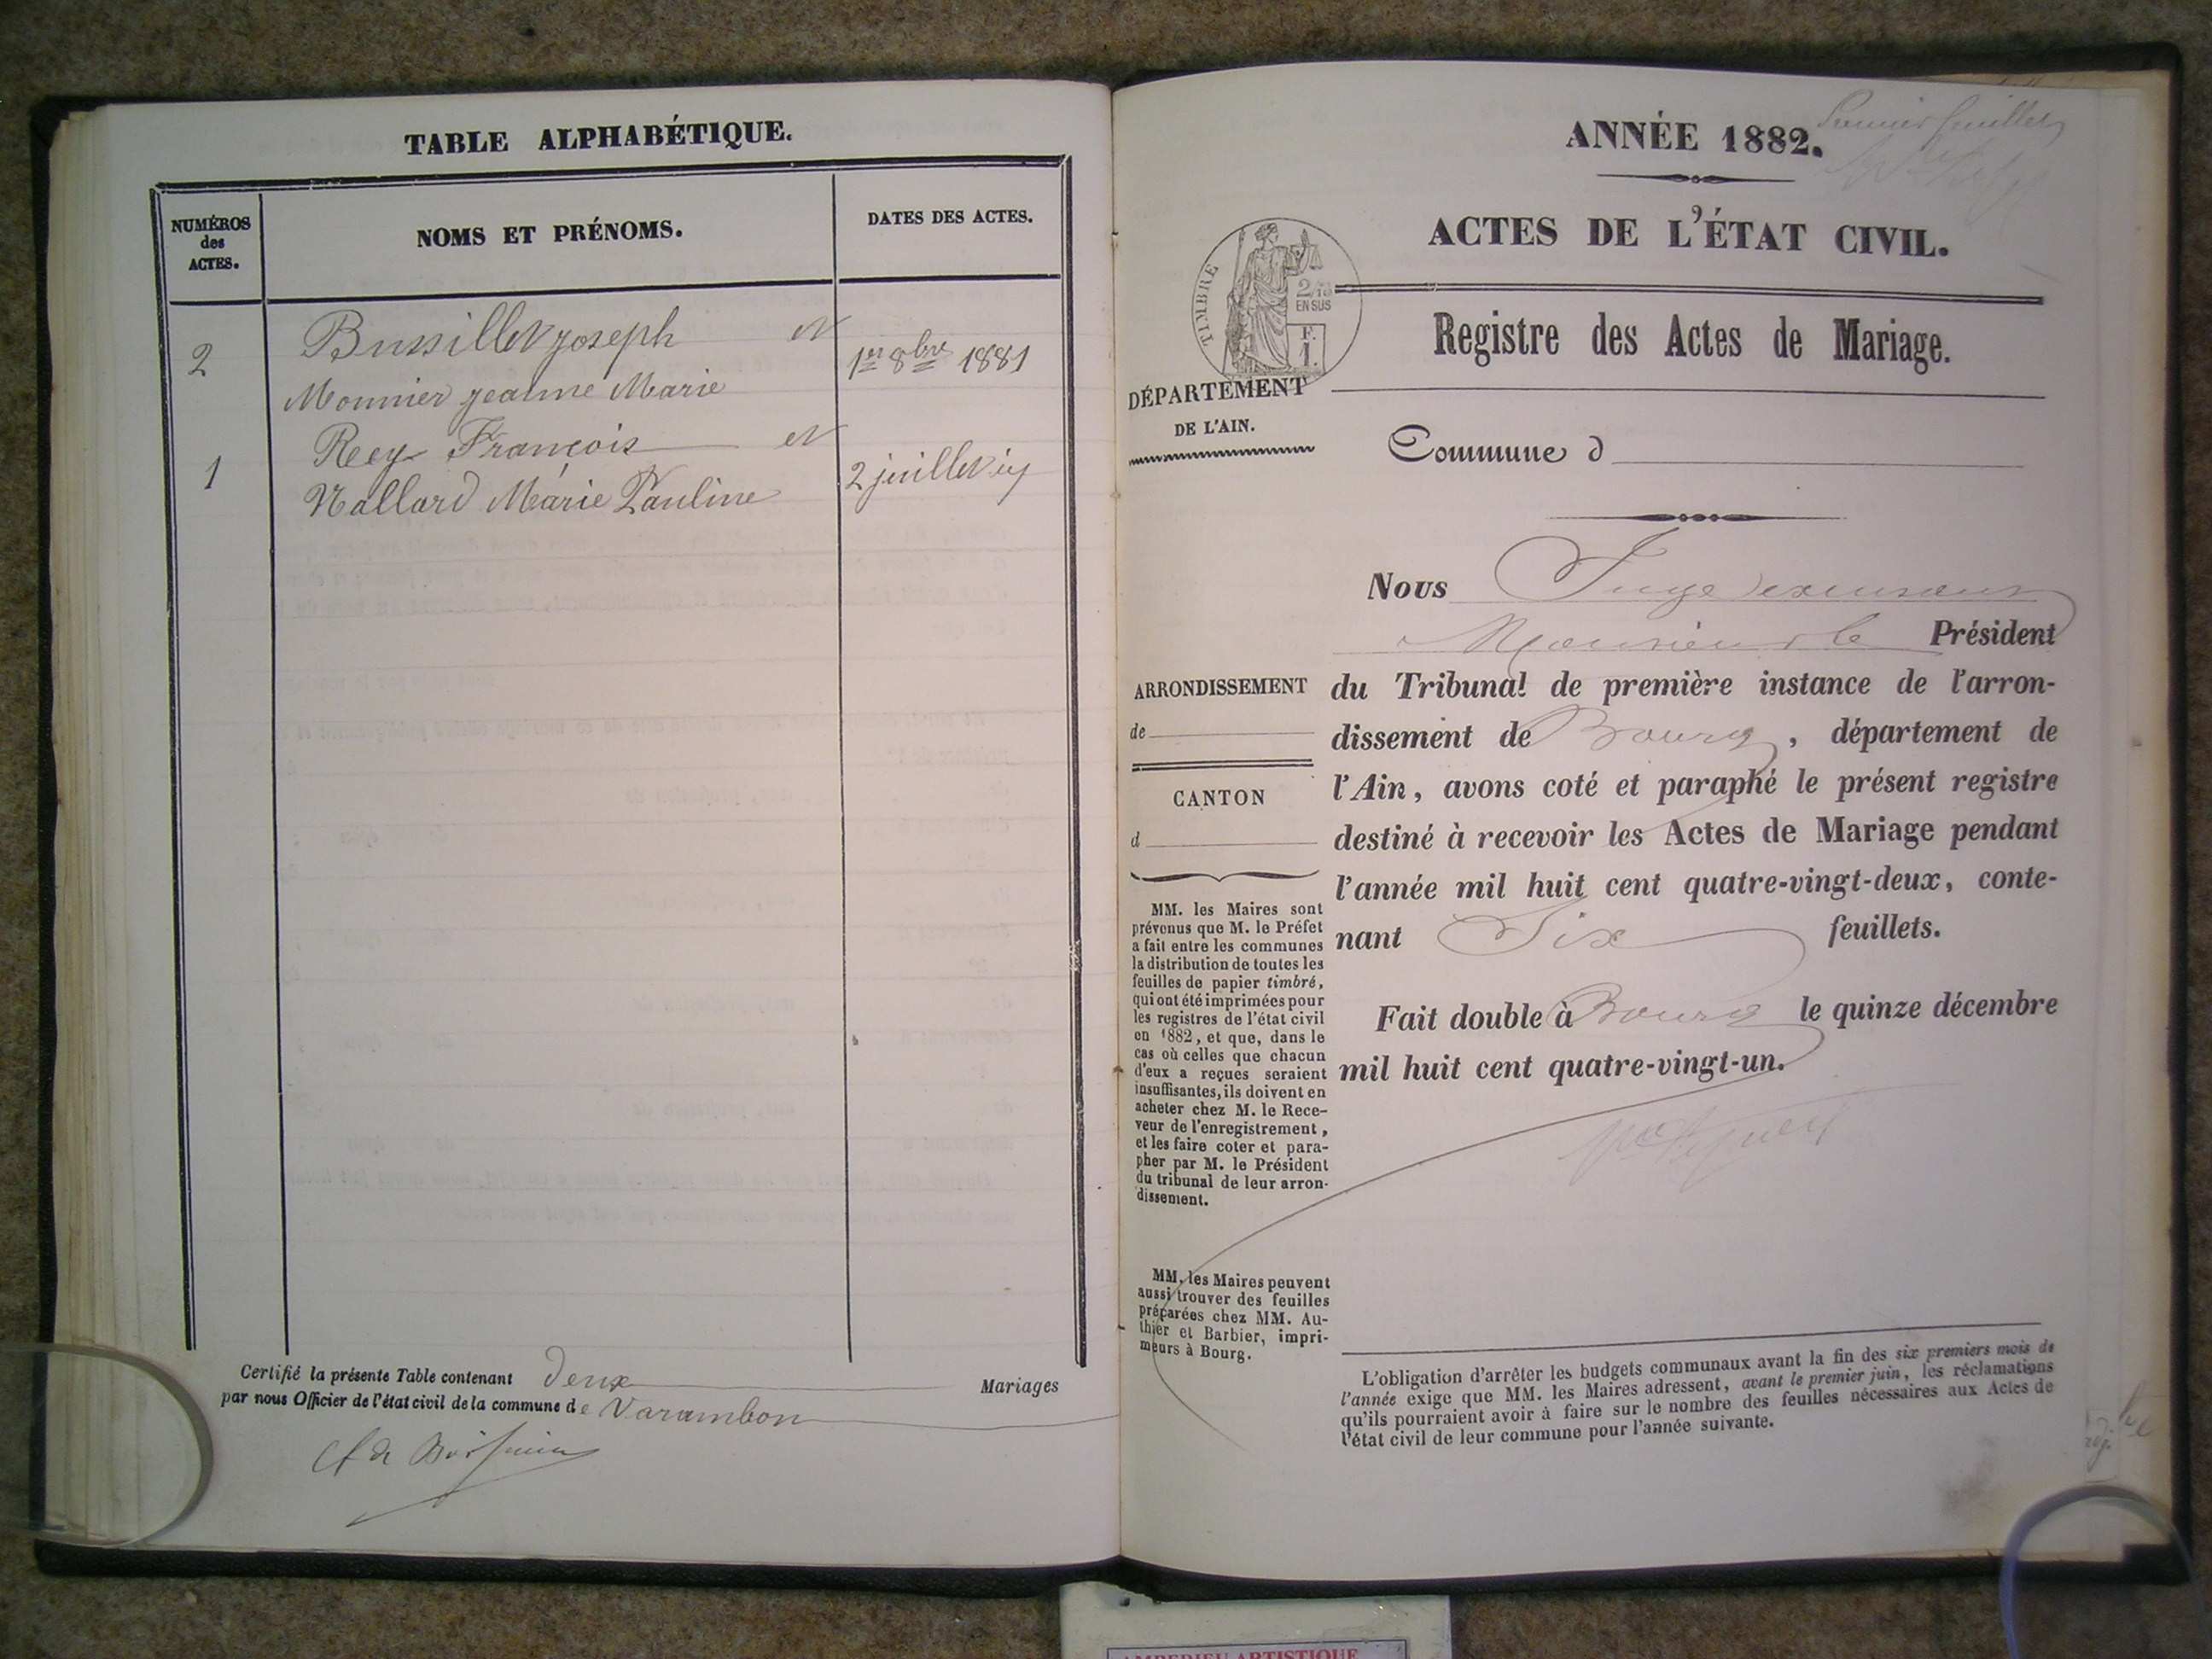 TABLE ALPHABÉTIQUE.
NUMÉROS
des
ACTES.
NOMS ET PRÉNOMS.
DATES DES ACTES.
2
Bussillet joseph et
Monnier jeanne Marie
1er 8bre 1881
1
Rey François et
Vallard Marie Pauline
2 juillet
Certifié la présente Table contenant deux Mariages
par nous Officier de l'état civil de la commune de Varambon
ANNÉE 1882.
Premier feuillet
ACTES DE L'ÉTAT CIVIL.
TIMBRE
2/10
EN SUS
F.
1.
Registre des Actes de Mariage.
DÉPARTEMENT
DE L'AIN.
Commune d
Nous Juge
Monsieur le Président
du Tribunal de première instance de l'arron-
dissement de Bourg, département de
l'Ain, avons coté et paraphé le présent registre
destiné à recevoir les Actes de Mariage pendant
l'année mil huit cent quatre-vingt-deux, conte-
nant Six feuillets.
Fait double à Bourg le quinze décembre
mil huit cent quatre-vingt-un.
ARRONDISSEMENT
de
CANTON
d
MM. les Maires sont
prévenus que M. le Préfet
a fait entre les communes
la distribution de toutes les
feuilles de papier timbré,
qui ont été imprimées pour
les registres de l'état civil
en 1882, et que, dans le
cas où celles que chacun
d'eux a reçues seraient
insuffisantes, ils doivent en
acheter chez M. le Rece-
veur de l'enregistrement,
et les faire coter et para-
pher par M. le Président
du tribunal de leur arron-
dissement.
MM. les Maires peuvent
aussi trouver des feuilles
préparées chez MM. Au-
thier et Barbier, impri-
meurs à Bourg.
L'obligation d'arrêter les budgets communaux avant la fin des six premiers mois de
l'année exige que MM. les Maires adressent, avant le premier juin, les réclamations
qu'ils pourraient avoir à faire sur le nombre des feuilles nécessaires aux Actes de
l'état civil de leur commune pour l'année suivante.
AMPERIEU ARTISTIQUE